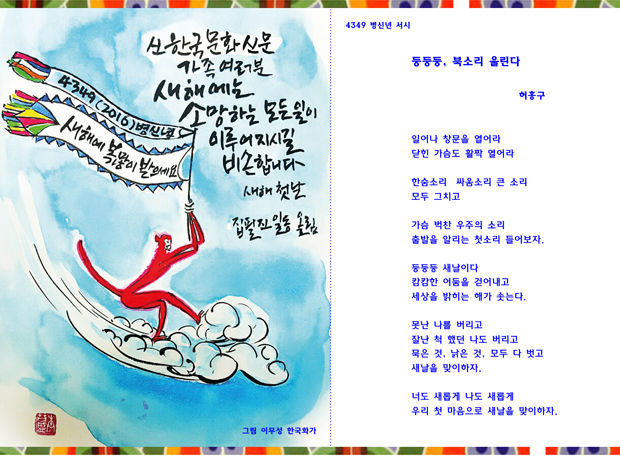 신한국문화신문
가족 여러분
새해에는
소망하는 모든 일이
이루어지시길
비손합니다
새해 첫날
집필진 일동 올림
4349(2016)병신년
새해에 복 많이 받으세요
그림 이무성 한국화가
4349 병신년 서시
둥둥둥, 북소리 울린다
허홍구
일어나 창문을 열어라
닫힌 가슴도 활짝 열어라
한숨소리 싸움소리 큰 소리
모두 그치고
가슴 벅찬 우주의 소리
출발을 알리는 첫소리 들어보자.
둥둥둥 새날이다
캄캄한 어둠을 걷어내고
세상을 밝히는 해가 솟는다.
못난 나를 버리고
잘난 척 했던 나도 버리고
묵은 것, 낡은 것, 모두 다 벗고
새날을 맞이하자.
너도 새롭게 나도 새롭게
우리 첫 마음으로 새날을 맞이하자.